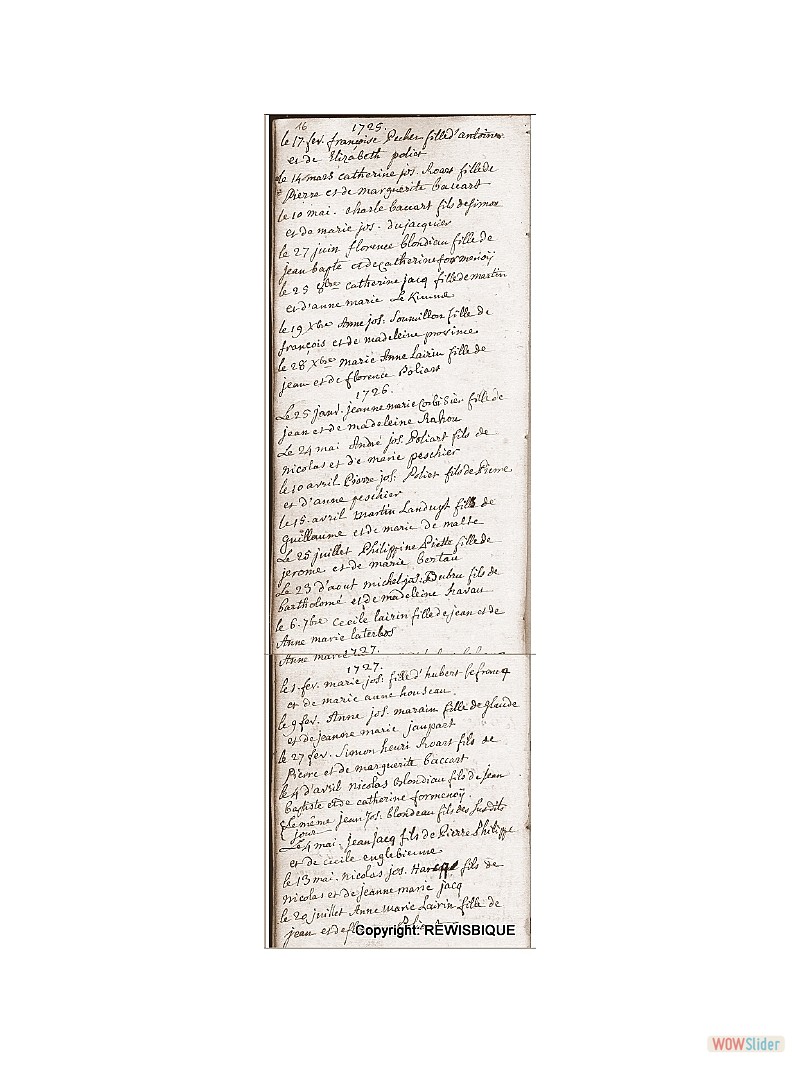 16 1725.
le 17 fev. françoise Pecher fille d'antoine
et de Elizabeth poliet
le 14 mars catherine jos. Roart fille de
Pierre et de marguerite baccart
le 10 mai. charle baccart fils de simon
et de marie jos. dujacquier
le 27 juin florence blondiau fille de
jean bapte et de catherine formenoÿ
le 25 8bre catherine jacq fille de martin
et d'anne marie
le 19 Xbre Anne jos. Souvillon fille de
françois et de madeleine
le 28 Xbre marie Anne Lairin fille de
jean et de florence Poliart
1726.
Le 25 janv. jeanne marie Corbisier fille de
jean et de madeleine
Le 24 mai André jos. Poliart fils de
nicolas et de marie peschier
le 10 avril Pierre jos: Poliet fils de Pierre
et d'anne peschier
le 15 avril Martin Landuyt fils de
guillaume et de marie de malte
Le 25 juillet Philippine Piette fille de
jerome et de marie
Le 23 d'aout michel jos. Dubru fils de
bartholomé et de madeleine havau
le 6 7bre Cecile lairin fille de jean et de
Anne marie laterbos
Anne marie 1727.
1727.
le 1 fev. marie jos. fille d'hubert lefrancq
et de marie anne houseau.
le 9 fev. Anne jos. marain fille de glaude
et de jeanne marie jaupart
le 27 fev. Simon henri Roart fils de
Pierre et de marguerite baccart
le 4 d'avril nicolas blondiau fils de jean
baptiste et de catherine formenoÿ.
le même jean jos. blondeau fils des susdits
jour
Le 4 mai. jean jacq fils de Pierre Philippe
et de cécile englebienne
le 13 mai. nicolas jos. fils de
nicolas et de jeanne marie jacq
le 20 juillet Anne Marie Lairin fille de
jean et de
Copyright: REWISBIQUE
WOWSlider